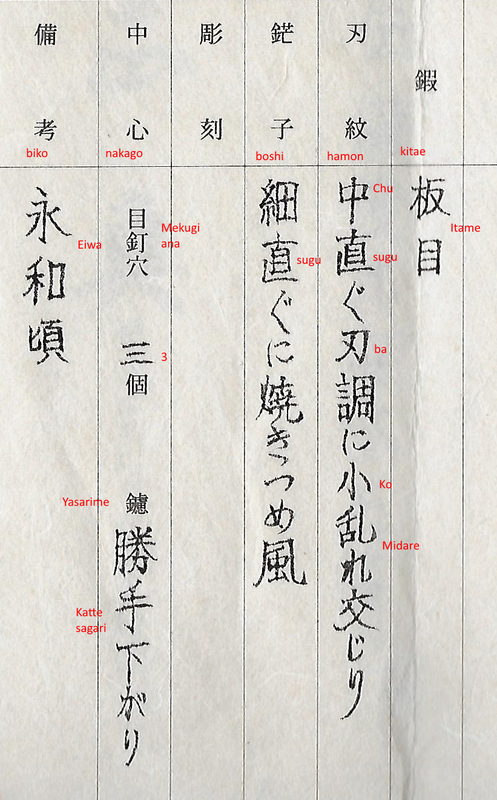 鍜
kitae
板目
Itame
刃紋
hamon
中直ぐ刃調に小乱れ交じり
Chu
sugu
ba
Ko
Midare
鋩子
boshi
細直ぐに焼きつめ風
sugu
彫刻
中心
nakago
目釘穴 三個 鑢 勝手下がり
Mekugi
ana
3
Yasarime
Katte
sagari
備考
biko
永和頃
Eiwa